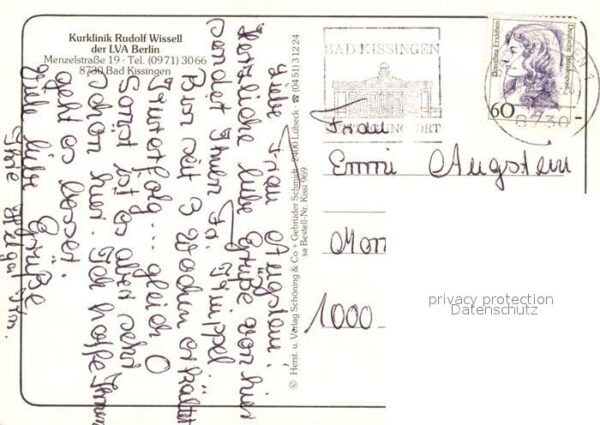 Kurklinik Rudolf Wissell
der LVA Berlin
Menzelstraße 19 · Tel. (09 71) 30 66
8730 Bad Kissingen
Liebe Frau Augstein!
Herzliche liebe Grüße von hier
sendet Ihnen Fr.
Bin seit 3 Wochen erkältet
gleich 0
Sonst ist es aber sehr
schön hier. Ich hoffe Ihnen
geht es besser.
Viele liebe Grüße
Ihre Helga
© Herst. u. Verlag Schöning & Co + Gebrüder Schmidt · 2400 Lübeck · ☎ (04 51) 3 12 24
sa Bestell-Nr. Kissi 969
BAD KISSINGEN
Dorothea Erxleben
Deutsche Bundespost
60
8730
Frau
Emmi Augstein
1000
privacy protection
Datenschutz